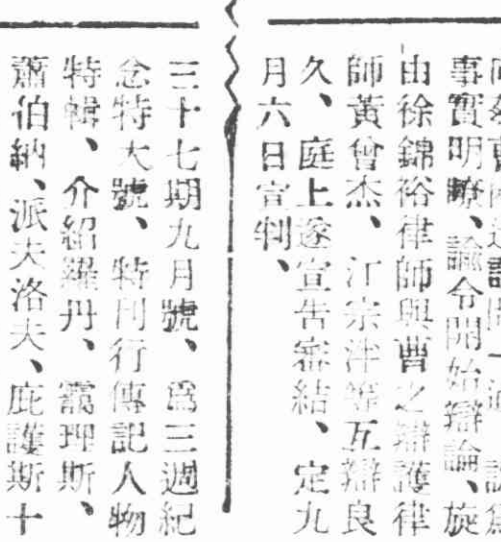 事實明瞭、諭令開始辯論、旋
由徐錦裕律師與曹之辯護律
師黃曾杰、江宗洋等互辯良
久、庭上遂宣告審結、定九
月六日宣判、
三十七期九月號、爲三週紀
念特大號、特刊行傳記人物
特輯、介紹羅丹、靄理斯、
蕭伯納、派夫洛夫、庇護斯十